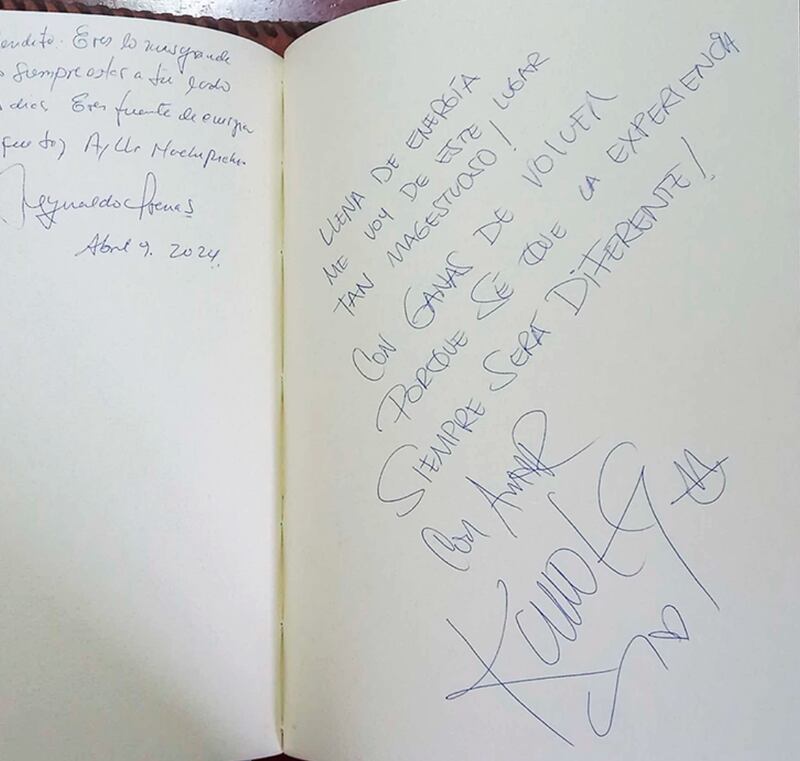 endito. Eres lo mas grande
siempre estar a tu lado
dias. Eres fuente de energia
Ayllu Machupicchu.
Reynaldo Arenas
Abril 9. 2024.
LLENA DE ENERGÍA
ME VOY DE ESTE LUGAR
TAN MAGESTUOSO!
CON GANAS DE VOLVER
PORQUE SÉ QUE LA EXPERIENCIA
SIEMPRE SERÁ DIFERENTE!
CON AMOR
KAROL G